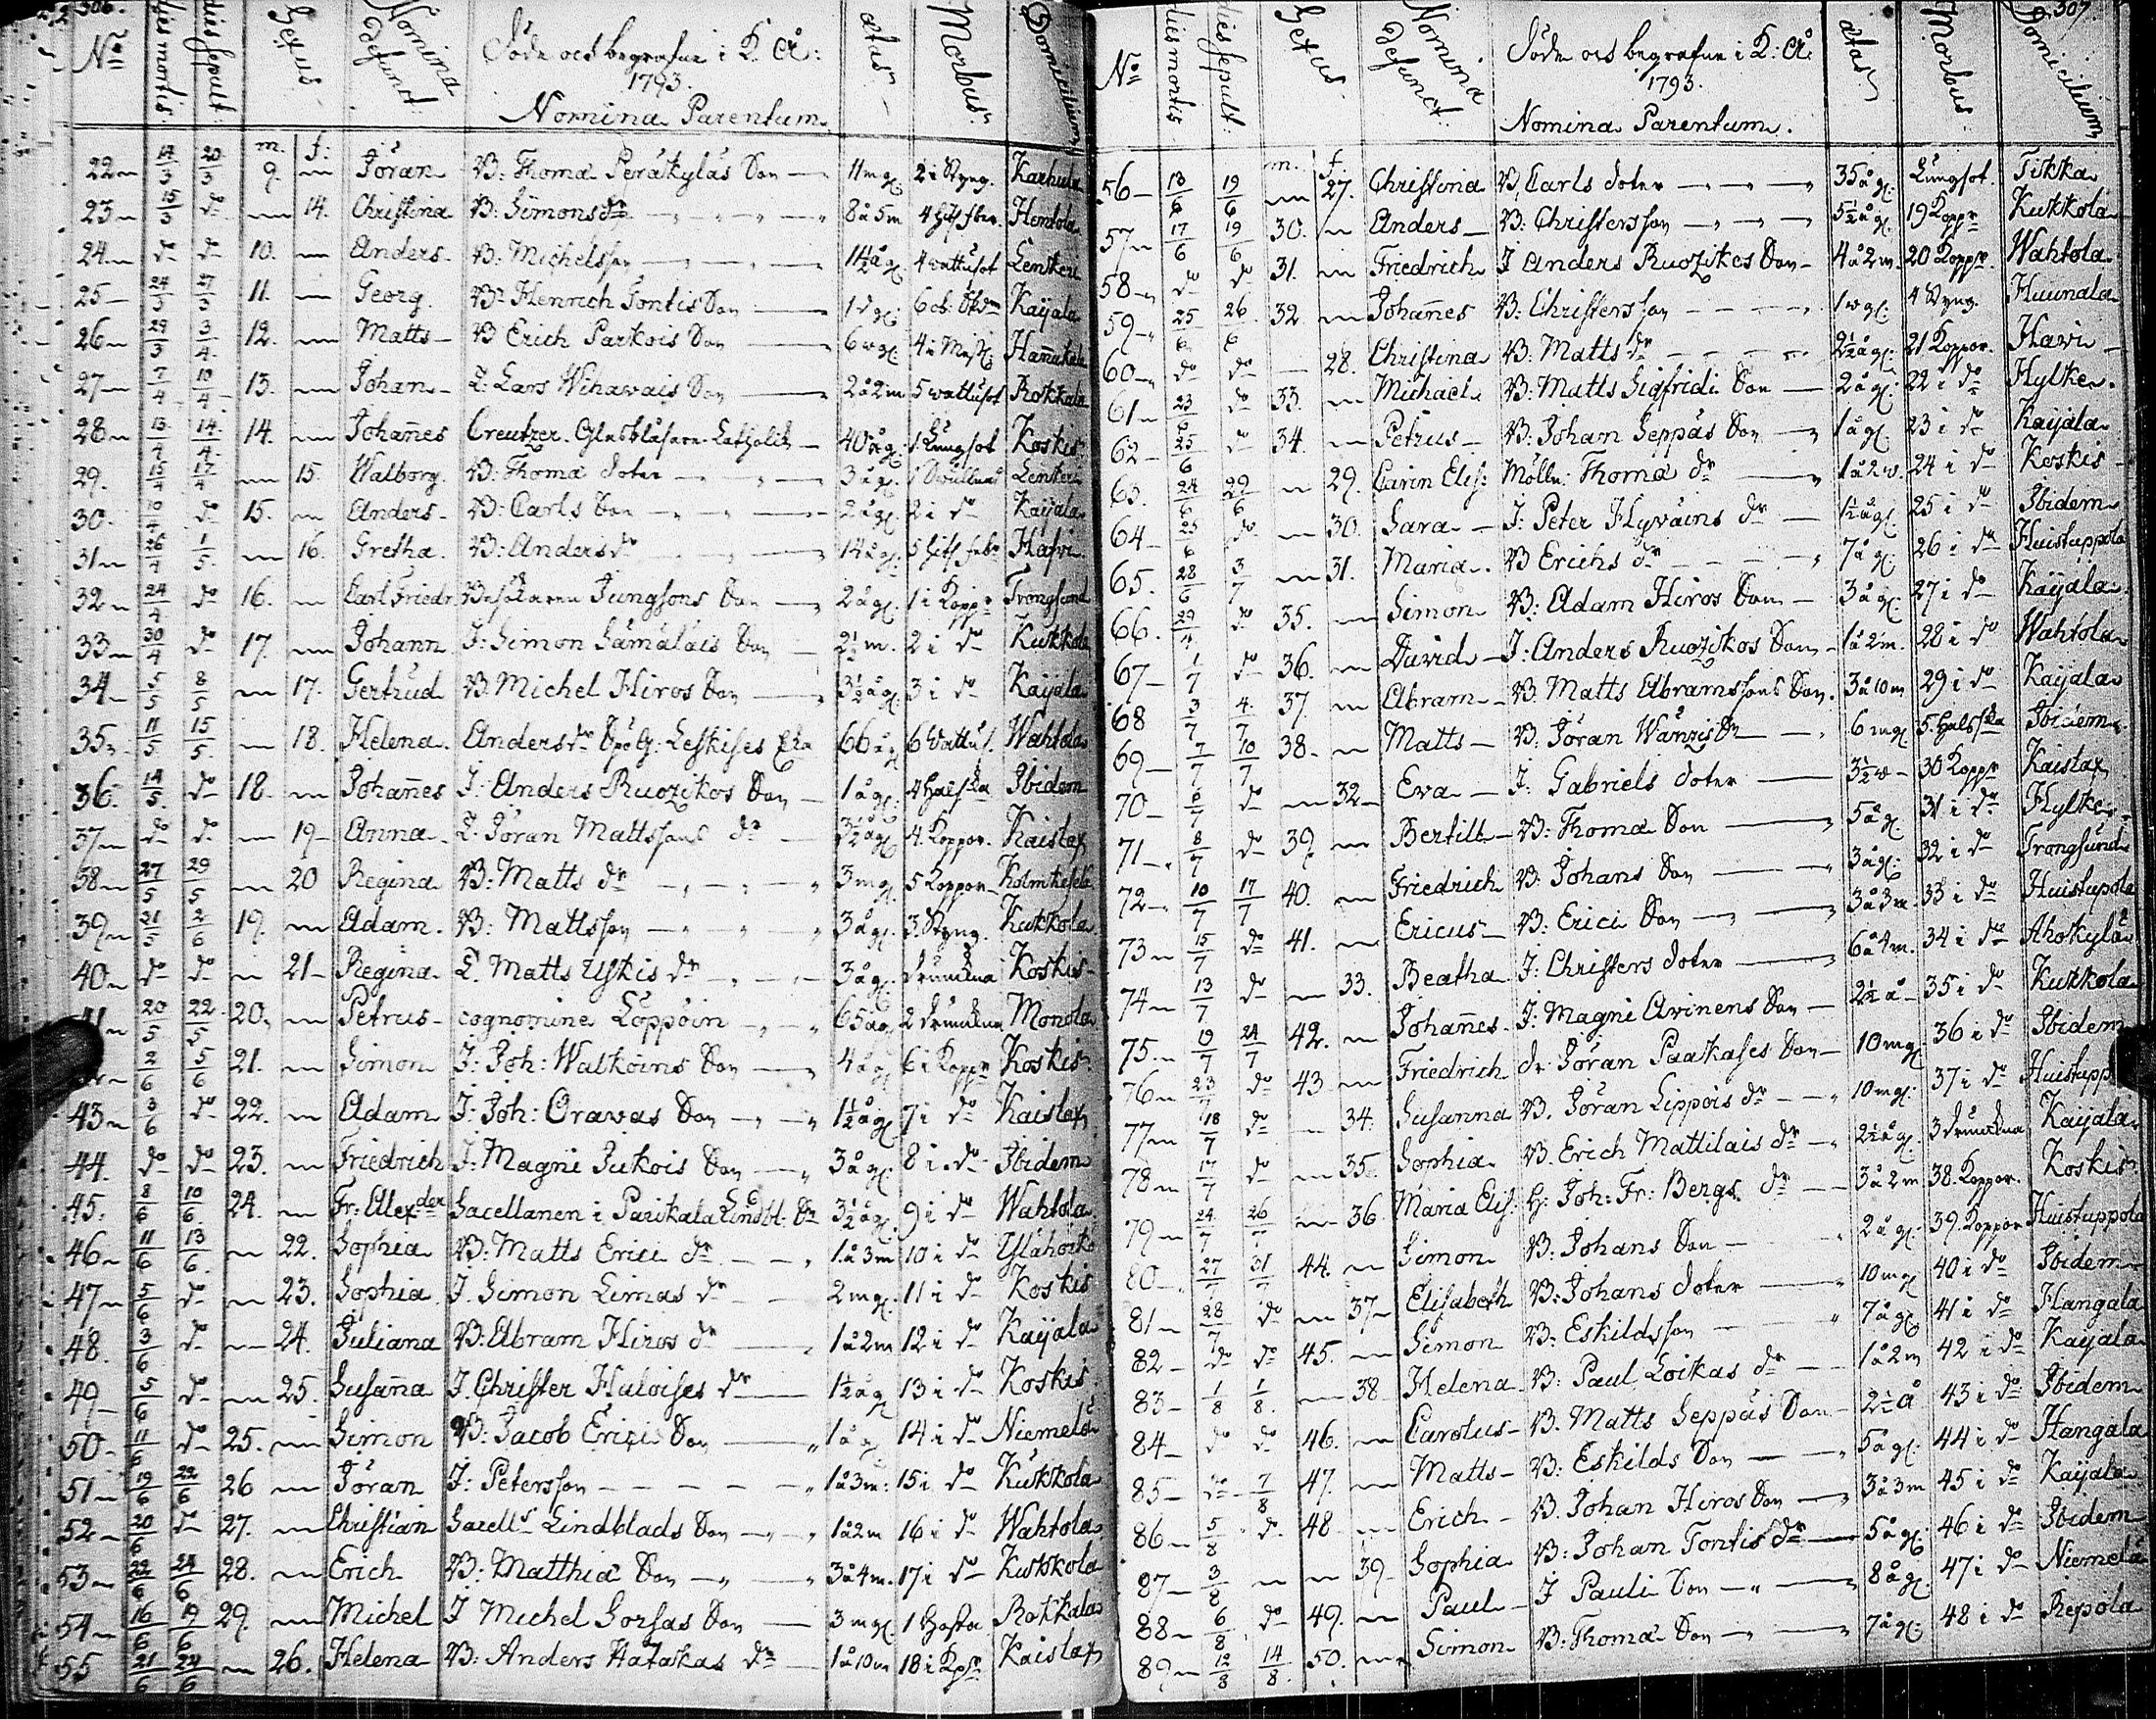 306.
No dies mortis dies sepult: Sexus Nomina defunct: Döde och begrafne i K. Å: 1793. Nomina Parentum ætas Morbus Domicilium
m. f:
22 14/3 20/3 9. Jöran B: Thomæ Peräkyläs Son 11 m gl: 2 i Styng. Karhula
23 15/3 do 14. Christina B: Simons dr 8 å 5 m 4 Hits fber. Hentola
24 do do 10. Anders B: Michelsson 11½ å gl: 4 wattusot Lenkeri
25 24/3 27/3 11. Georg. Br Henrich Tontis Son 1 d gl: 6 ob. Kayala
26 29/3 3/4. 12. Matts B Erich Parkois Son 6 w gl: Hannukala
27 7/4 10/4 13. Johan L: Lars Wihavais Son 2 å 2 m 5 wattusot Rokkala
28 13/4 14/4. 14. Johañes Creutzer. Glasblåsare 40 å gl: 1 Lungsot Koskis
29. 15/4 17/4 15. Walborg. B: Thomæ doter 3 å gl. Lenkeri
30. 10/4 do 15. Anders B: Carls Son 2 å gl: 2 i do Kayala
31 26/4 1/5. 16. Gretha. B: Anders dr 14 å gl: 5 Hits feber Hafvi
32 24/4 do 16. Carl Friedr. Jungsons Son 2 å gl: 1 i Koppr Trongsund
33 30/4 do 17. Johann J: Simon Sämäläis Son 2½ m. 2 i do Kukkola
34 5/5 8/5 17. Gertrud B. Michel Hiros Son 3½ å gl: 3 i do Kayala
35 11/5 15/5. 18. Helena. Anders dr Leskises Eka 66 å gl 6 Wattus. Wahtola
36. 14/5. do 18. Johañes J: Anders Ruotzikos Son 1 å gl: 4 Halsska Ibidem
37 do do 19 Anna L. Jöran Mattssons dr 3½ å gl 4. Koppor. Kaislax
38 27/5 29/5 20 Regina B: Matts dr 3 m gl 5 Koppor Holmkesela
39 31/5 2/6 19. Adam. B: Mattsson 3 å gl. 3. Styng. Kukkola
40 do do 21 Regina. L. Matts Uskis dr 3 å gl. drunkna Koskis
41 20/5 22/5 20. Petrus cognomine Löppöin 65 å gl 2 drunkna Monola
2/6 5/6 21. Simon J: Joh: Walkoins Son 4 å gl 6 i Koppr Koskis
43 3/6 do 22. Adam J: Joh: Oravas Son 1½ å gl 7 i do Kaislax
44. do do 23. Friedrich J: Magni Jukois Son 3 å gl: 8 i do Ibidem
45. 8/6 10/6. 24. Fr: Alexder Sacellanen i Parikala Lindbl: Sn 3½ å gl 9 i do Wahtola
46 11/6 13/6. 22. Sophia B: Matts Erici dr 1 å 3 m 10 i do
47 5/6 do 23. Sophia J. Simon Limas dr 2 m gl: 11 i do Koskis
48. 3/6 do 24. Juliana B: Abram Hiros dr 1 å 2 m 12 i do Kayala
49 5/6 do 25. Susaña J. Christer Haloises dr 1½ å gl 13 i do Koskis
50 11/6 do 25. Simon B: Jacob Erici Son 1 å gl 14 i do Niemelä
51 19/6 22/6 26 Jöran J: Petersson 1 å 3 m: 15 i do Kukkola
52 20/6 do 27. Christian Sacells Lindblads Son 1 å 2 m 16 i do Wahtola
53 22/6 24/6 28. Erich B: Matthiæ Son 3 å 4 m. 17 i do Kukkola
54 16/6 19/6 29. Michel J Michel Sorsas Son 3 m gl 1 Hosta Rokkala
55 21/6 24/6 26. Helena B: Anders Hatakas dr 1 å 10 m 18 i Kopr Kaislax
307.
No dies mortis dies sepult: Sexus Nomina defunct: Döde och begrafne i K: Å 1793. Nomina Parentum. ætas Morbus Domicilium
m. f.
56 13/6 19/6 27. Christina B. Carls doter 35 å gl: Lungsot. Tikka
57 17/6 19/6 30. Anders B: Christersson 5½ å gl: 19 Koppr Kukkola
58 do do 31. Friedrich J Anders Ruotzikos Son 4 å 2 m. 20 Koppr. Wahtola
59 25/6 26/6 32. Johañes B: Christersson 1 w gl: 4 Styng. Huunala
60 do do 28. Christina B: Matts dr 2½ å gl: 21 Koppor. Havi
61 23/6 do 33. Michael B: Matts Sigfridi Son 2 å gl: 22 i do Hylke.
62 25/6 do 34. Petrus B: Johan Seppäs Son 1 å gl. 23 i do Kayala
63. 24/6 29/6 29. Carin Elis: Mölln: Thomæ dr 1 å 2 w. 24 i do Koskis
64 25/6 do 30. Sara J: Peter Hyväins dr 1½ å gl. 25 i do Ibidem
65. 28/6 3/7 31. Maria B Erichs dr 7 å gl. 26 i do Huistuppola
66. 29/4 do 35. Simon B: Adam Hiros Son 3 å gl. 27 i do Kayala
67 1/7 do 36. David J: Anders Ruotzikos Son 1 å 2 m. 28 i do Wahtola
68 3/7 4/7 37. Abram B. Matts Abramssons Son. 3 å 10 m 29 i do Kayala
69 7/7 10/7 38. Matts B: Jöran Wänzis Sn 6 m gl. 5. Halsska Ibidem
70 6/7 do 32 Eva J: Gabriels doter 3½ w 30 Koppr Kaislax
71 8/7 do 39. Bertill B: Thomæ Son 5 å gl 31 i do Hylke
72 10/7 17/7 40. Friedrich B: Johans Son 3 å gl: 32 i do Trongsund
73 15/7 do 41. Ericus B: Erici Son 3 å 3 m. 33 i do Huistupola
74 13/7 do 33. Beatha J: Christers doter 6 å 4 m. 34 i do Ahokylä
75. 19/7 24/7 42. Johañes J: Magni Avinens Son 2½ å 35 i do Kukkola
76 23/7 do 43 Friedrich dr Jöran Paakases Son 10 m gl 36 i do Ibidem
77 18/7 do 34. Susanna B. Jöran Lippois dr 10 m gl: 37 i do Huistupp
78 17/7 do 35. Sophia B. Erich Mattilais dr 2½ å gl. 3 drunkna Kayala
79 24/7 26/7 36. Maria Elis. H: Joh: Fr: Bergs dr 3 å 2 m 38. Koppor. Koskis
80 27/7 31/7 44. Simon B: Johans Son 2 å gl. 39. Koppor Huistuppola
81 28/7 do 37 Elisabeth B: Johans doter 10 m gl 40 i do Ibidem
82 do do 45. Simon B: Eskildsson 7 å gl 41 i do Hangala
83 1/8 1/8. 38 Helena B: Paul Loikas dr 1 å 2 m 42 i do Kayala
84 do do 46. Carolus B. Matts Seppäs Son 2½ å 43 i do Ibidem
85 do 7/8 47. Matts B: Eskilds Son 5 å gl: 44 i do Hangala
86 5/8 do 48 Erich B. Johan Hiros Son 3 å 3 m 45 i do Kayala
87 3/8 39 Sophia B: Johan Tontis dr 5 å gl. 46 i do Ibidem
88 6/8 do 49. Paul J Pauli Son 8 å gl. 47 i do Niemelä
89 12/8 14/8. 50. Simon B: Thomæ Son 7 å gl: 48 i do Repola